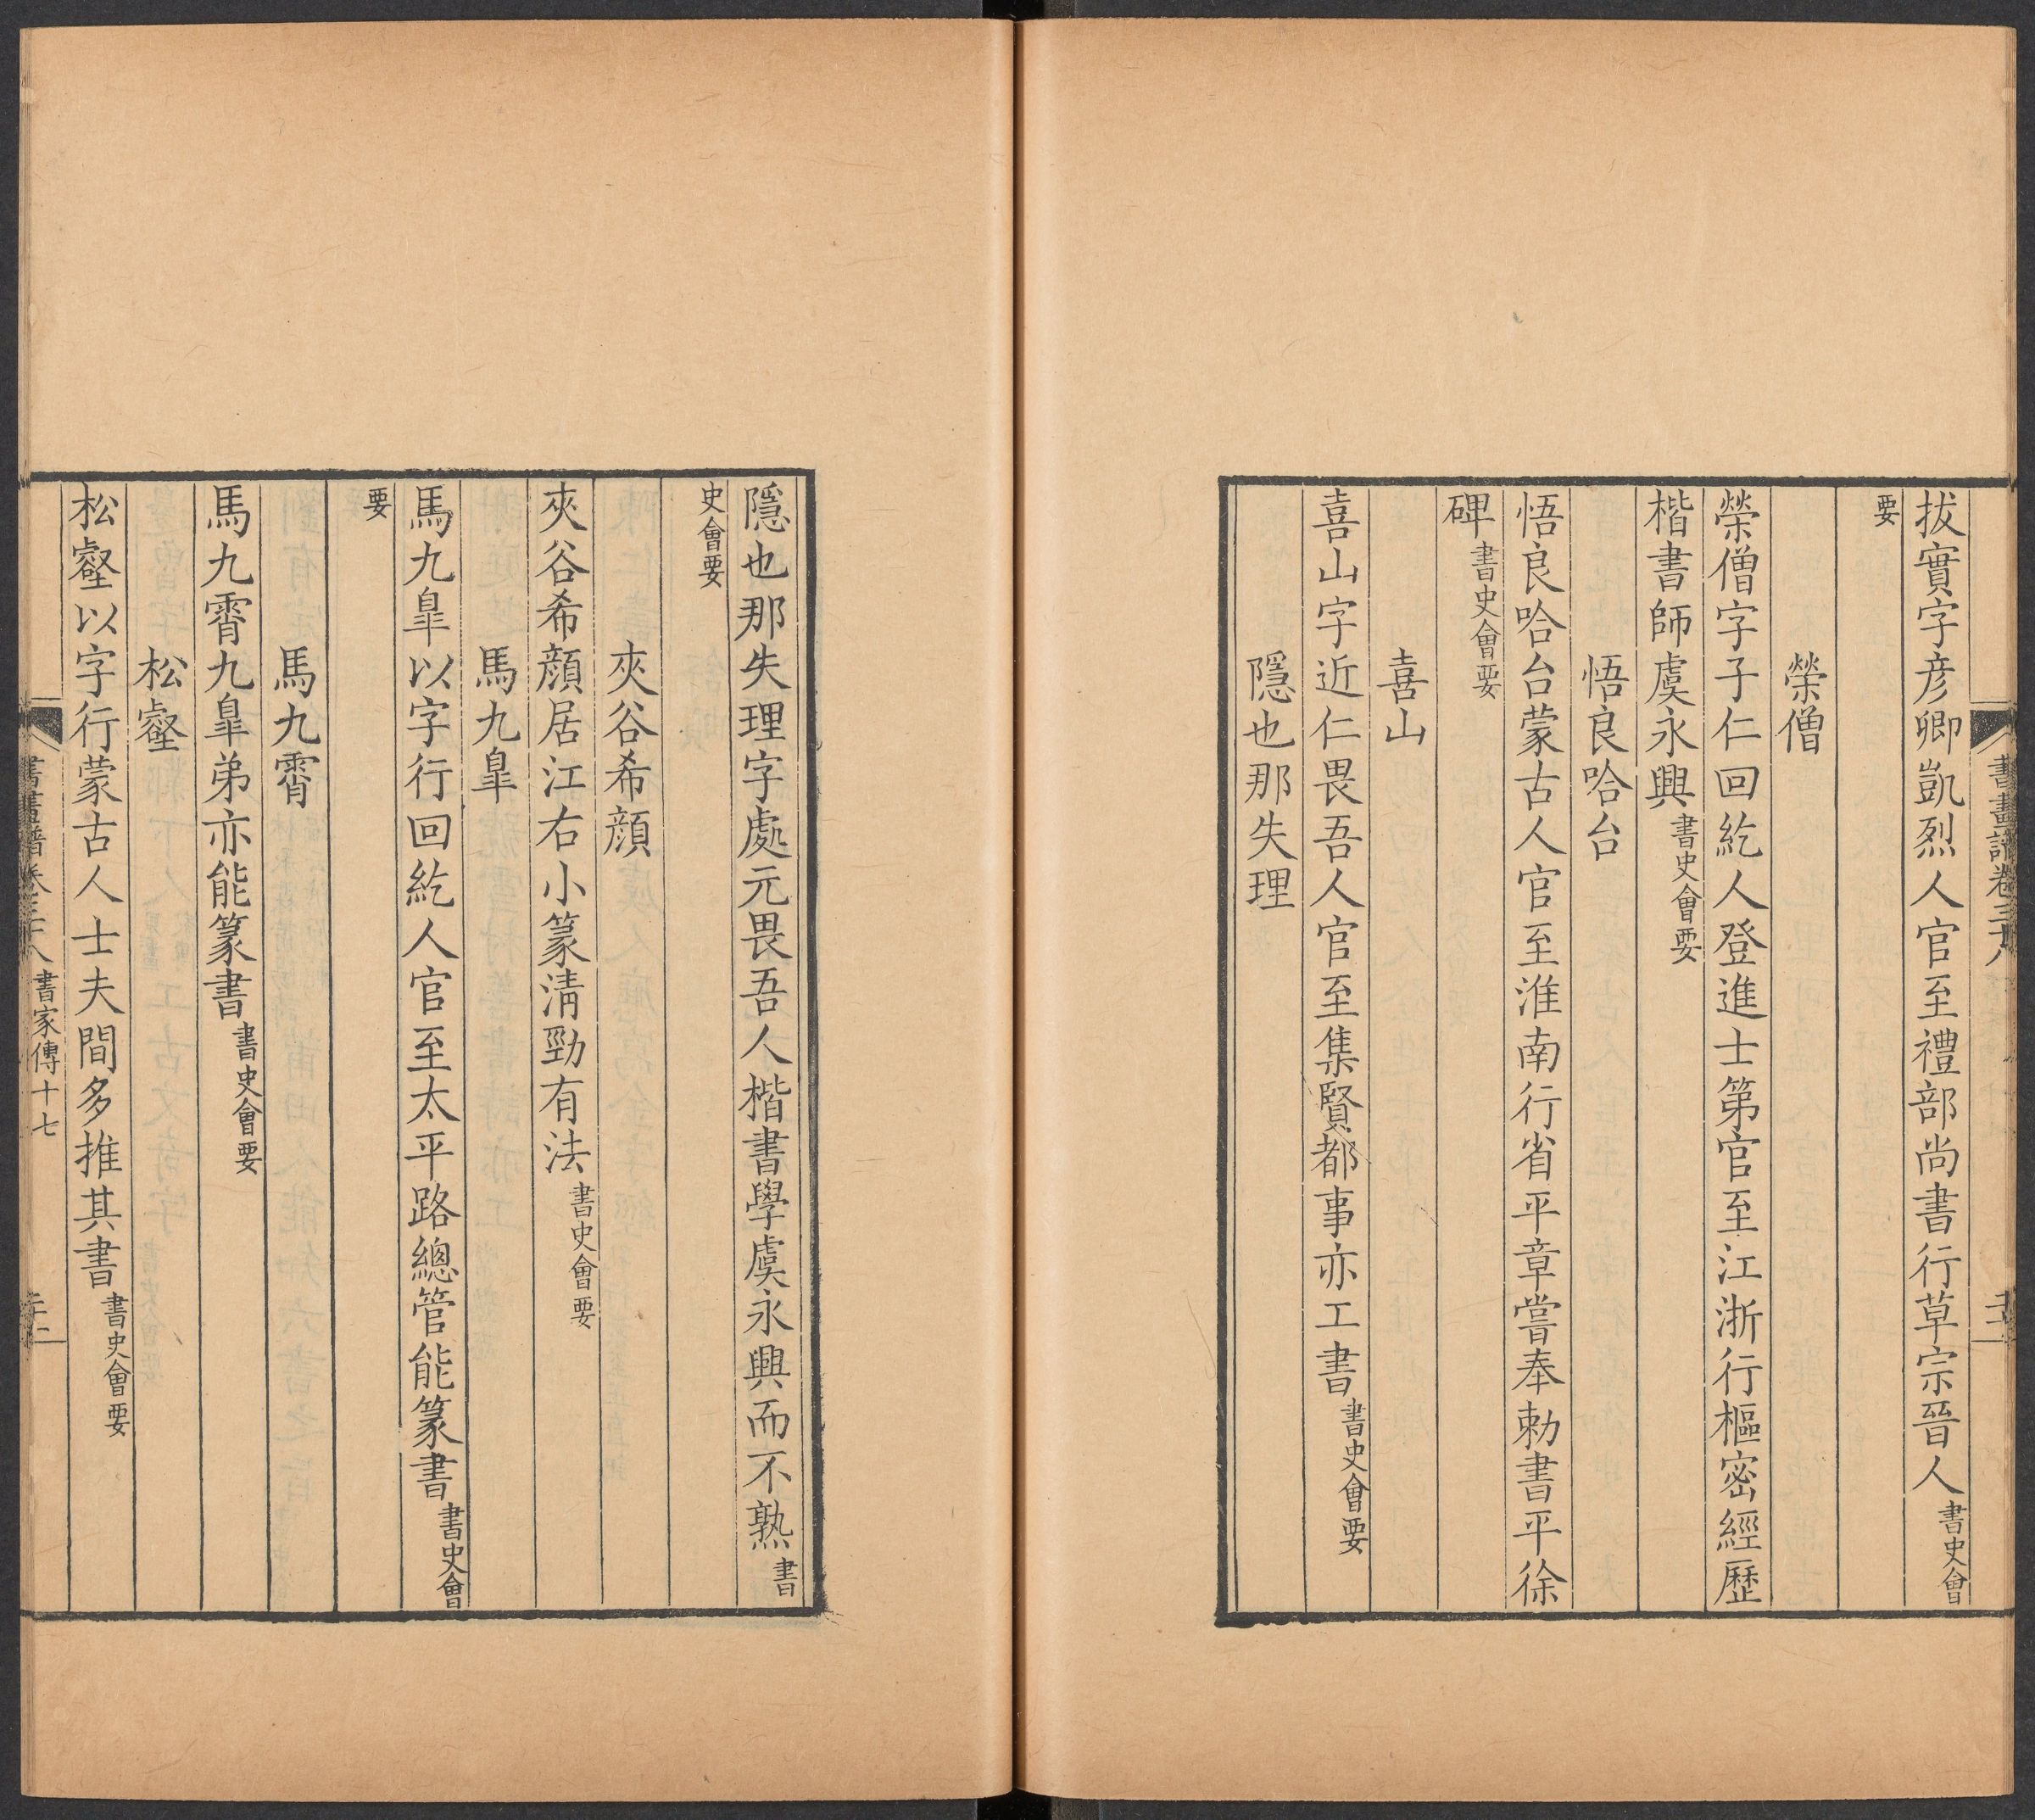 書畫譜卷三十八
拔實字彦卿凱烈人官至禮部尚書行草宗晉人書史會
要
榮僧
榮僧字子仁回紇人登進士第官至江浙行樞密經歷
楷書師虞永興書史會要
悟良哈台
悟良哈台蒙古人官至淮南行省平章嘗奉勅書平徐
碑書史會要
喜山
喜山字近仁畏吾人官至集賢都事亦工書書史會要
隱也那失理
隱也那失理字處元畏吾人楷書學虞永興而不熟書
史會要
夾谷希顔
夾谷希顔居江右小篆淸勁有法書史會要
馬九臯
馬九臯以字行回紇人官至太平路總管能篆書書史會
要
馬九霄
馬九霄九臯弟亦能篆書書史會要
松壑
松壑以字行蒙古人士夫間多推其書書史會要
書畫譜卷三十八 書家傳十七